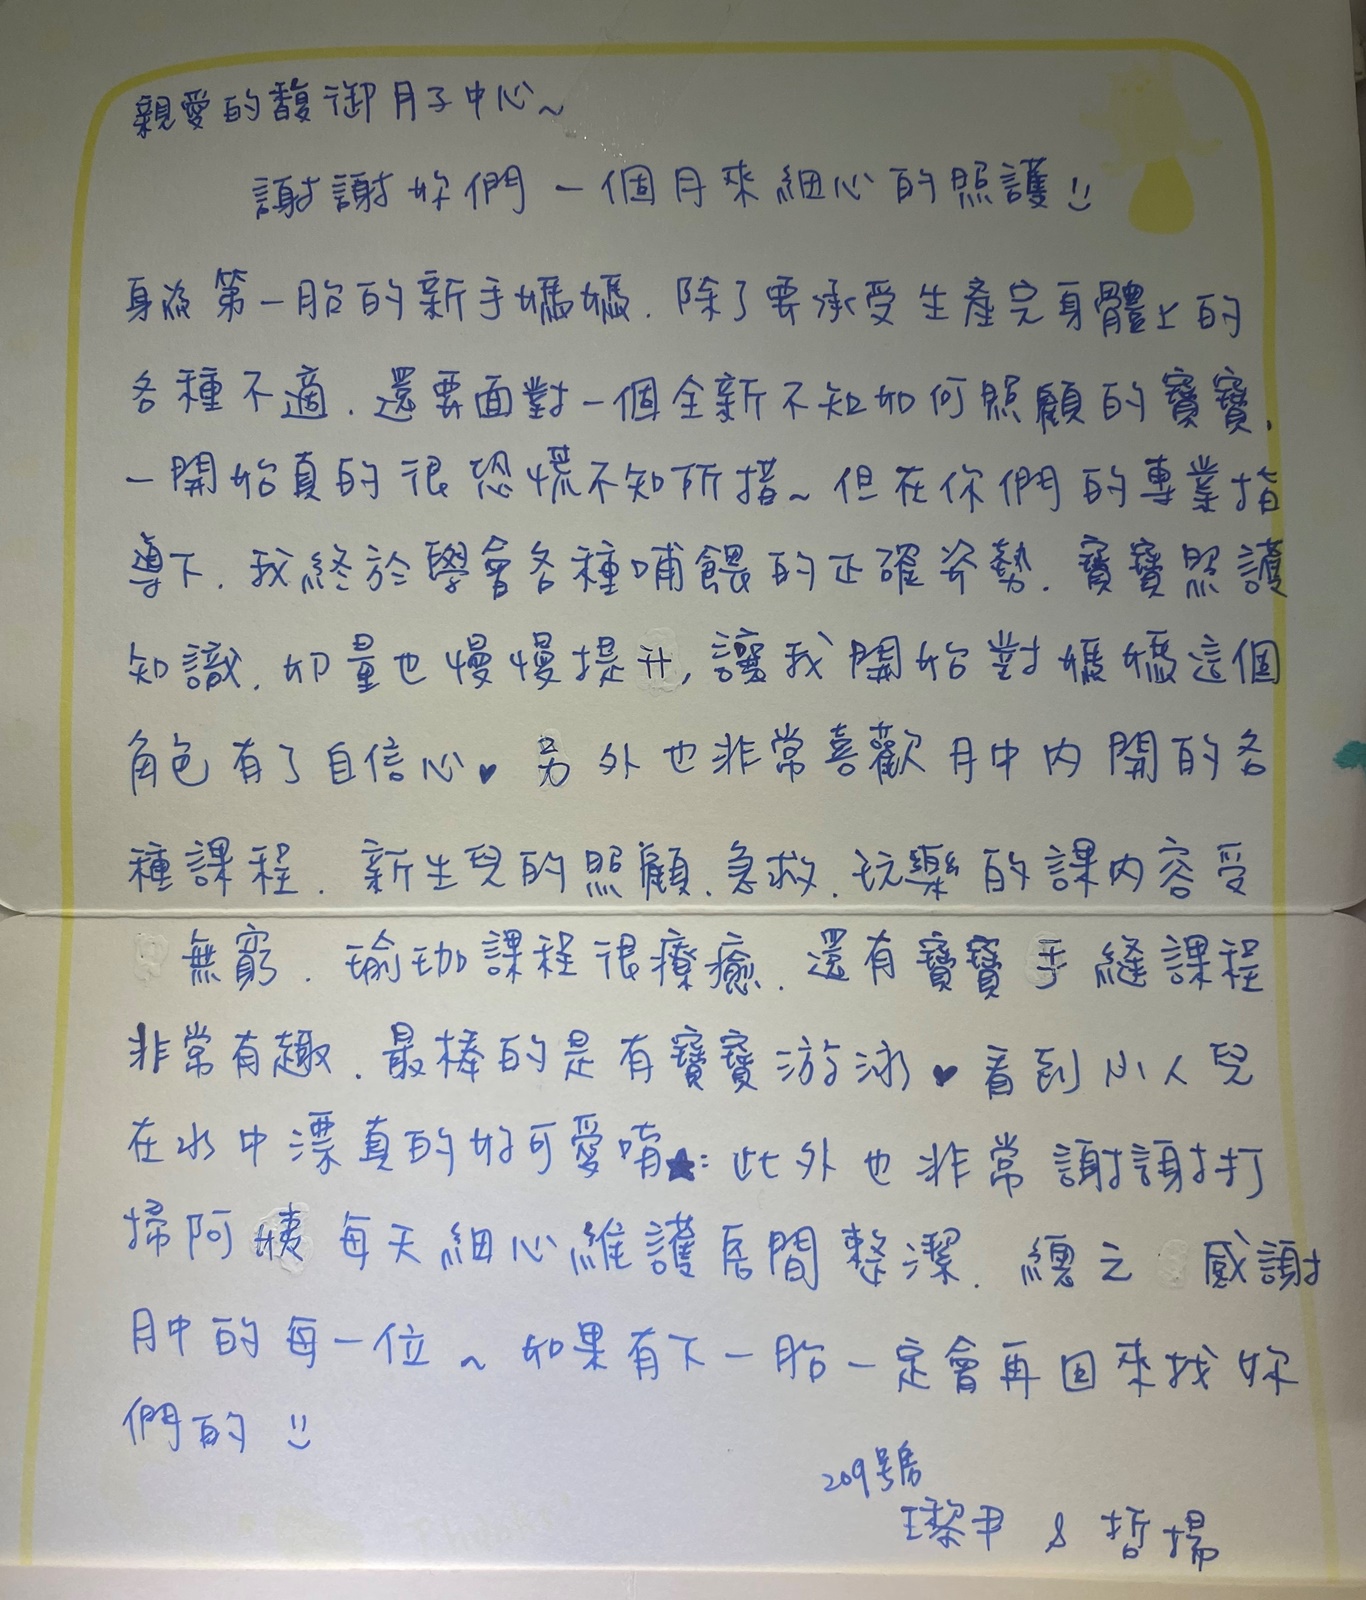 親愛的馥御月子中心~
謝謝妳們一個月來細心的照護!!
身為第一胎的新手媽媽. 除了要承受生產完身體上的
各種不適. 還要面對一個全新不知如何照顧的寶寶.
一開始真的很恐慌不知所措~ 但在你們的專業指
導下. 我終於學會各種哺餵的正確姿勢. 寶寶照護
知識. 奶量也慢慢提升, 讓我開始對媽媽這個
角色有了自信心♥ 另外也非常喜歡月中內開的各
種課程. 新生兒的照顧.急救.玩樂的課內容受
無窮. 瑜珈課程很療癒. 還有寶寶手縫課程
非常有趣. 最棒的是有寶寶游泳♥ 看到小人兒
在水中漂真的好可愛唷★: 此外也非常謝謝打
掃阿姨每天細心維護房間整潔. 總之 感謝
月中的每一位~ 如果有下一胎一定會再回來找妳
們的 !!
209號房
王黎尹 & 哲揚